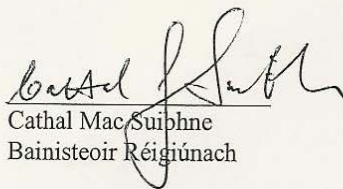 Cathal
Cathal Mac Suibhne
Bainisteoir Réigiúnach